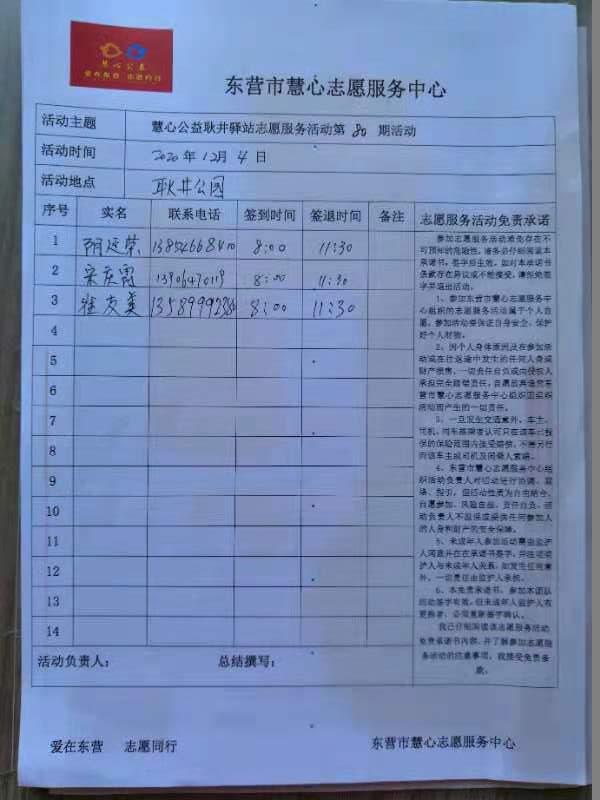 慧心公益
爱在东营 志愿同行
东营市慧心志愿服务中心
活动主题 慧心公益耿井驿站志愿服务活动第 80 期活动
活动时间 2020年12月4日
活动地点 耿井公园
序号 实名 联系电话 签到时间 签退时间 备注 志愿服务活动免责承诺
1 8:00 11:30
2 8:00 11:30
3 8:00 11:30
4
5
6
7
8
9
10
11
12
13
14
参加志愿服务活动难免存在不
可预知的危险性，请务必仔细阅读本
承诺书，签字后生效。如对本承诺书
条款存在异议或不能接受，请拒绝签
字并退出活动。
1、参加东营市慧心志愿服务中
心组织的志愿服务活动属于个人自
愿，参加活动要保证自身安全，保护
好个人财物。
2、因个人身体原因及在参加活
动或在行返途中发生的任何人身或
财产损害，一切责任自负或向侵权人
营市慧心志愿服务中心组织因组织
活动而产生的一切责任。
3、一旦发生交通意外，车主、
保的保险范围内接受赔偿，不得另行
向该车主或司机及同乘人索赔。
4、东营市慧心志愿服务中心组
织活动负责人对活动进行协调、联
络、指引，但活动性质为自由结合、
自愿参加、风险自担、责任自负。活
动负责人不担保或提供任何参加人
的人身和财产的安全保障。
5、未成年人参加活动需由监护
人同意并在在承诺书签字，并注明监
护人与未成年人关系，如发生任何意
外，一切责任由监护人承担。
6、本免责承诺书，参加本团队
活动签字有效，但未成年人监护人有
我已仔细阅读该志愿服务活动
免责承诺书内容，并了解参加志愿服
务活动的注意事项，我接受免责条
款。
活动负责人： 总结撰写：
爱在东营 志愿同行 东营市慧心志愿服务中心